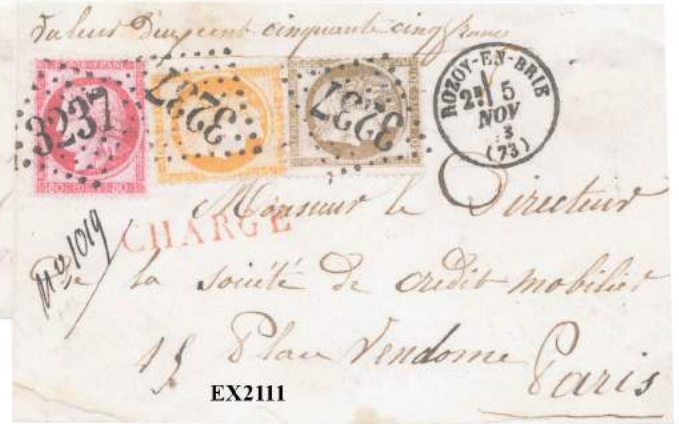 Valeur Deux cent cinquante cinq francs
3237
3237
3237
80 80
ROZOY-EN-BRIE
2E 5
NOV
73
(73)
CHARGÉ
No 1019
Monsieur le Directeur
De la société de crédit mobilier
15 Place Vendome
Paris
EX2111